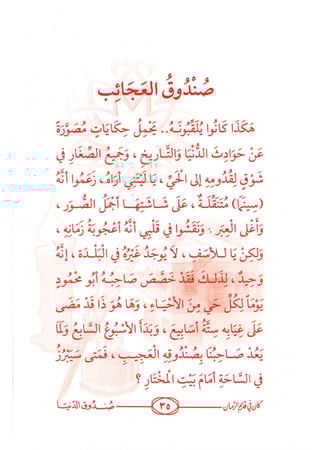 صُنْدُوقُ العَجَائِب
هَكَذَا كَانُوا يُلَقِّبُونَـهُ.. يَحْمِلُ حِكَايَاتٍ مُصَوَّرَةً
عَنْ حَوَادِثِ الدُّنْيَا وَالتَّارِيخِ ، وَجَمِيعُ الصِّغَارِ فِي
شَوْقٍ لِقُدُومِهِ إلى الْحَيِّ ، يَا لَيْتَنِي أَرَاهُ ، زَعَمُوا أَنَّهُ
(سِينَمَا) مُتَنَقِّلَـةٌ ، عَلَى شَاشَتِهَـا أَجْمَلُ الصُّوَرِ ،
وَأَغْلى العِبَرِ . وَنَقَشُوا فِي قَلْبِي أَنَّهُ أُعْجُوبَةُ زَمَانِهِ ،
وَلَكِنْ يَا لـلأسَف ، لاَ يُوجَدُ غَيْرُهُ فِي الْبَلْـدَة ، إنَّهُ
وَحِيدٌ ، لِذَلـِكَ فَقَدْ خَصَّصَ صَاحِبُـهُ أَبُو مَحْمُودٍ
يَوْمًا لِكُلِّ حَيٍّ مِنَ الأَحْيَـاءِ ، وَهَا هُوَ ذَا قَدْ مَضَى
عَلَى غِيَابِهِ سِتَّةُ أَسَابِيعَ ، وَبَدَأَ الأُسْبُوعُ السَّابِعُ وَلَمَّا
يَعُدْ صَـاحِبُنَا بِصُنْدُوقِهِ الْعَجِيـبِ ، فَمَتى سَيَبْرُزُ
فِي السَّاحَةِ أَمَامَ بَيْتِ الْمُخْتَارِ ؟
كان في قديم الزمان
٣٥
صُـنـدوق الدنيـا